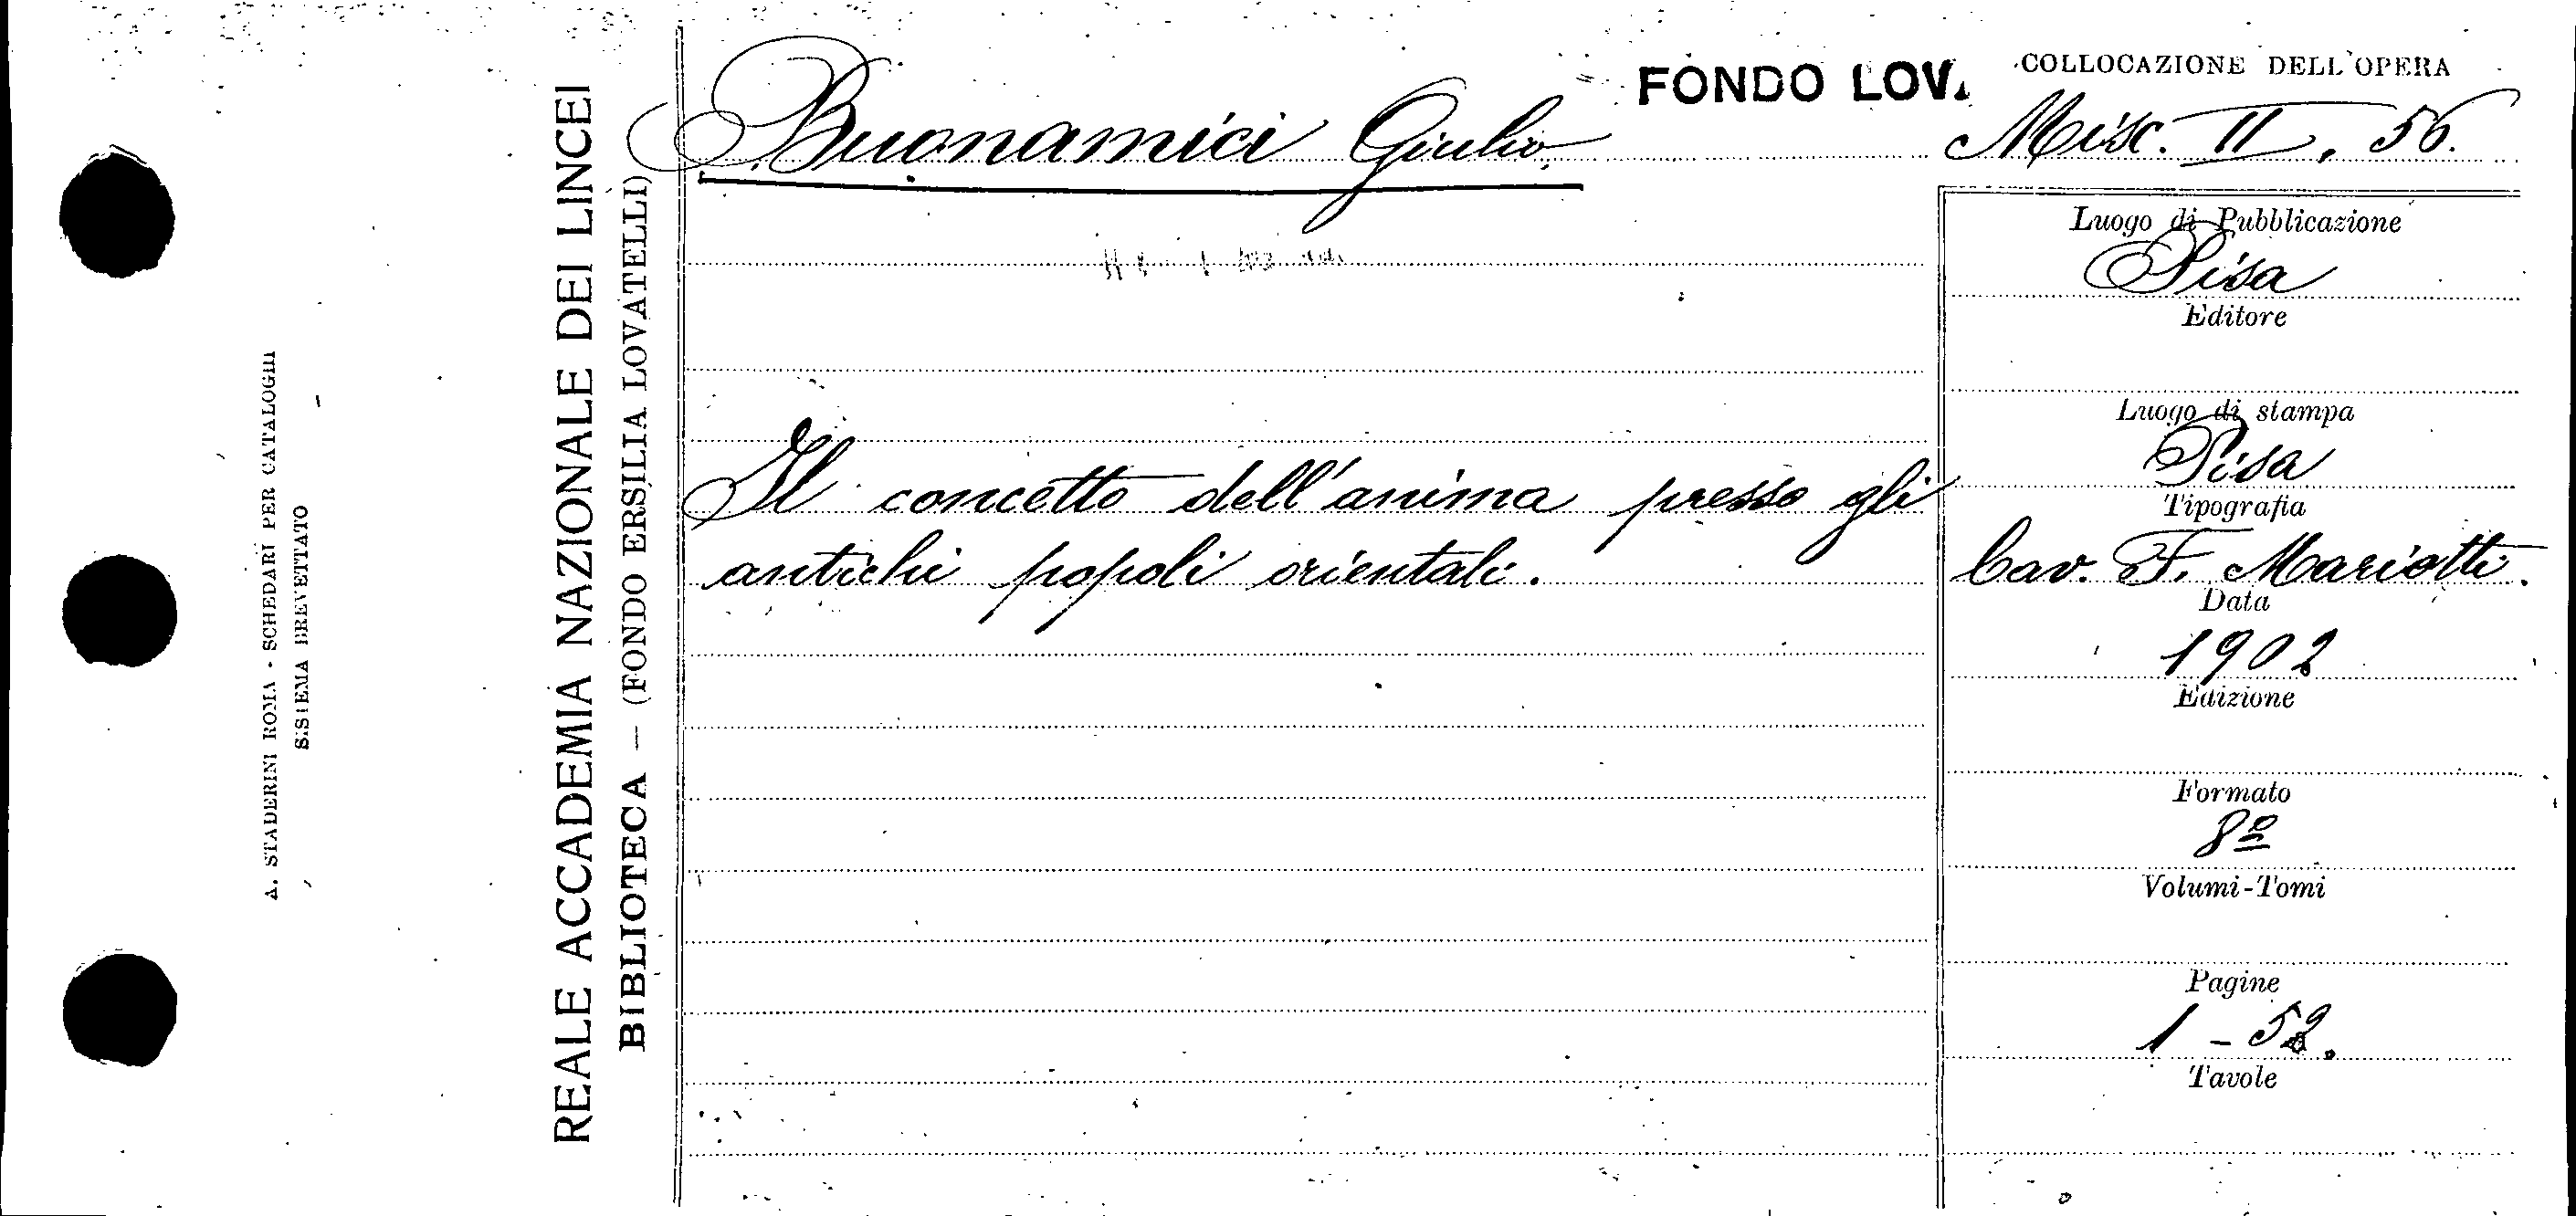 A. STADERINI ROMA - SCHEDARI PER CATALOGHI
SISTEMA BREVETTATO
REALE ACCADEMIA NAZIONALE DEI LINCEI
BIBLIOTECA — (FONDO ERSILIA LOVATELLI)
FONDO LOV.
COLLOCAZIONE DELL'OPERA
Buonamici Giulio
Misc. II, 56.
Il concetto dell'anima presso gli
antichi popoli orientali.
Luogo di Pubblicazione
Pisa
Editore
Luogo di stampa
Pisa
Tipografia
Cav. F. Mariotti.
Data
1902
Edizione
Formato
8º
Volumi-Tomi
Pagine
1 - 52.
Tavole